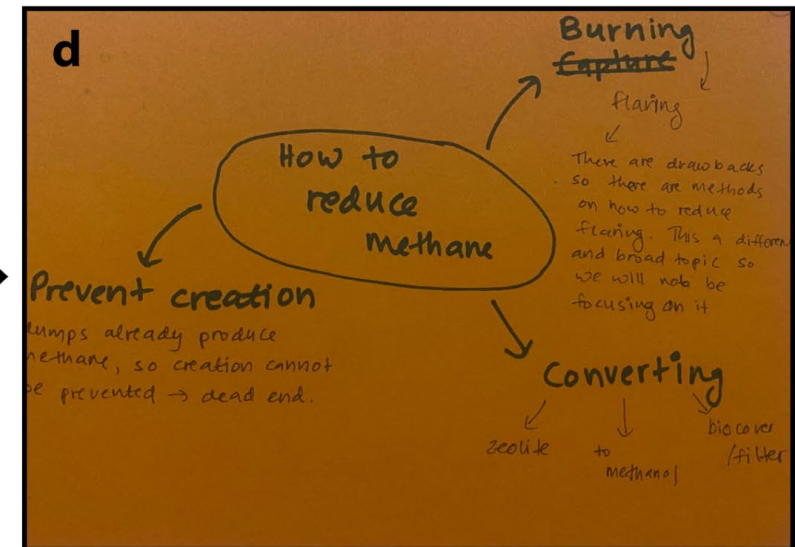 d
Burning
Capture
flaring
There are drawbacks
so there are methods
on how to reduce
flaring. This a differen
and broad topic so
we will not be
focusing on it
How to
reduce
methane
Prevent creation
dumps already produce
methane, so creation cannot
be prevented → dead end.
Converting
zeolite
to
methanol
biocover
/filter